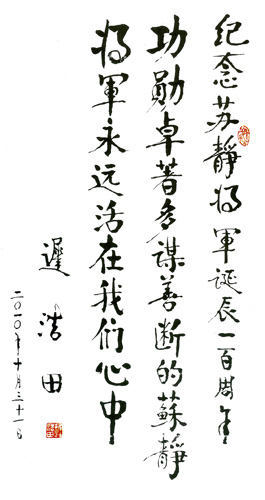 纪念苏静将军诞辰一百周年
功勋卓著多谋善断的蘇靜
将軍永远活在我们心中
遲浩田
二〇一〇年十月三十一日